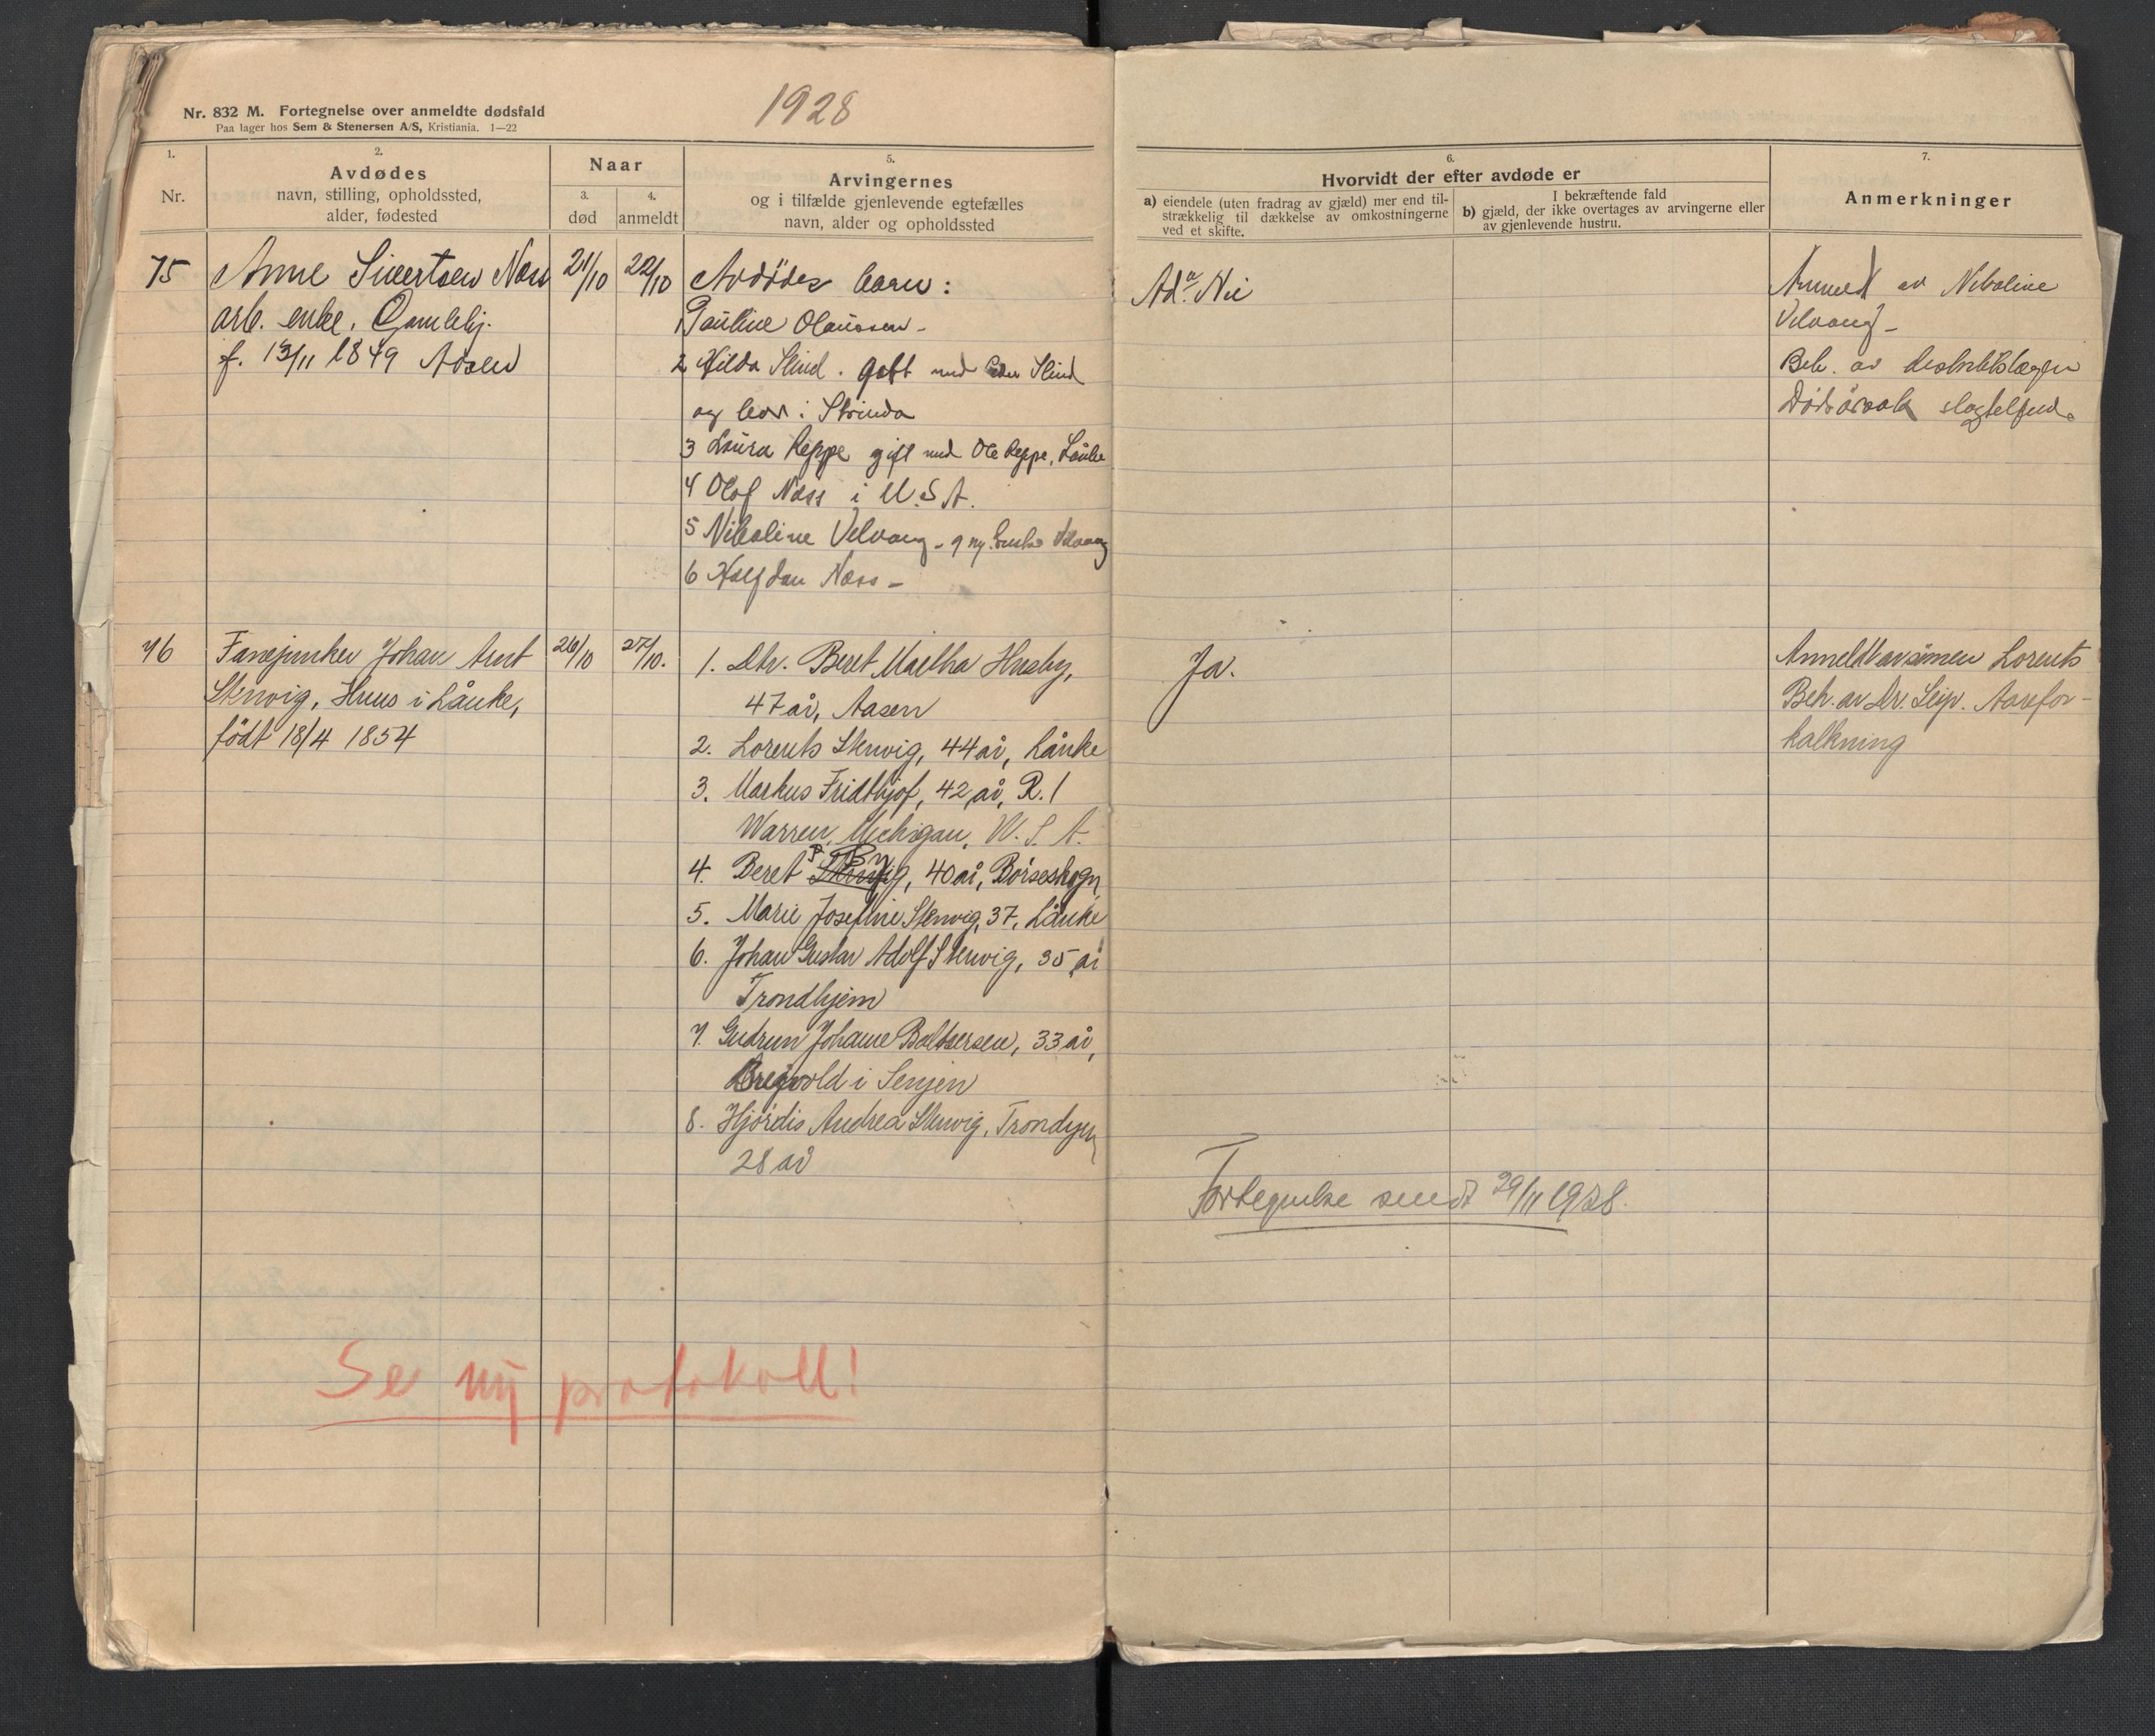 Nr. 832 M. Fortegnelse over anmeldte dødsfald
Paa lager hos Sem & Stenersen A/S, Kristiania. 1—22
1928
1.
Nr.
2.
Avdødes
navn, stilling, opholdssted,
alder, fødested
Naar
3.
død
4.
anmeldt
5.
Arvingernes
og i tilfælde gjenlevende egtefælles
navn, alder og opholdssted
6.
Hvorvidt der efter avdøde er
a) eiendele (uten fradrag av gjæld) mer end til-
strækkelig til dækkelse av omkostningerne
ved et skifte.
I bekræftende fald
b) gjæld, der ikke overtages av arvingerne eller
av gjenlevende hustru.
7.
Anmerkninger
75
Anne Sivertsen Næss
arb. enke, Gamlehj.
f. 13/11 1849 Aasen
21/10
22/10
Avdødes barn:
1 Pauline Olaussen -
2 Hilda Slind. gift med Slind
og bor i Strinda
3 Laura Reppe gift med Ole Reppe, Lånke
4 Olaf Næss i U.S.A.
5 Nikoline Velvang - Velvang
6 Halfdan Næss -
Ad. a Nei
Anmeldt av Nikoline
Velvang -
Beh. av distriktslægen
Dødsårsak slagtilfelde
76
Fanejunker Johan Arnt
Stenvig, Huus i Lånke,
født 18/4 1854
26/10
27/10.
1. Dtr. Beret Martha Husby,
47 år, Aasen
2. Lorents Stenvig, 44 år, Lånke
3. Markus Fridthjof, 42 år, R. 1
Warren, Michigan, U. S. A.
4. Beret By, 40 år, Børseskogn
5. Marie Josefine Stenvig, 37, Lånke
6. Johan Gustav Adolf Stenvig, 35 år
Trondhjem
7. Gudrun Johanne Baltsersen, 33 år,
i Senjen
8. Hjørdis Andrea Stenvig, Trondhjem
28 år
Ja.
Anmeldt av sønnen Lorents
Beh. av Dr. Aarefor-
kalkning
Fortegnelse sendt 29/11 1928.
Se ny protokoll!